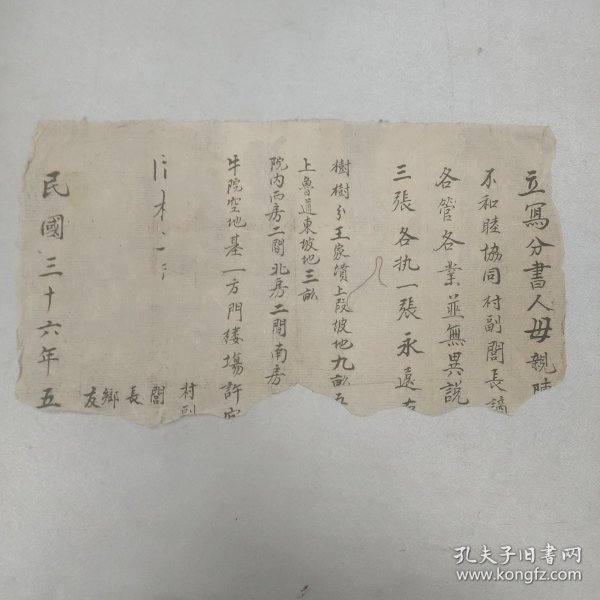 立寫分書人母親
不和睦協同村副閭長
各管各業並無異說
三張各执一張永遠
樹樹分王家墳上段坡地九畝五
上魯道東坡地三畝
院内西房二間北房二間南房
牛院空地基一方門樓場許
村副
閭
長
鄉
友
民國三十六年五
孔夫子旧书网
www.kongfz.com